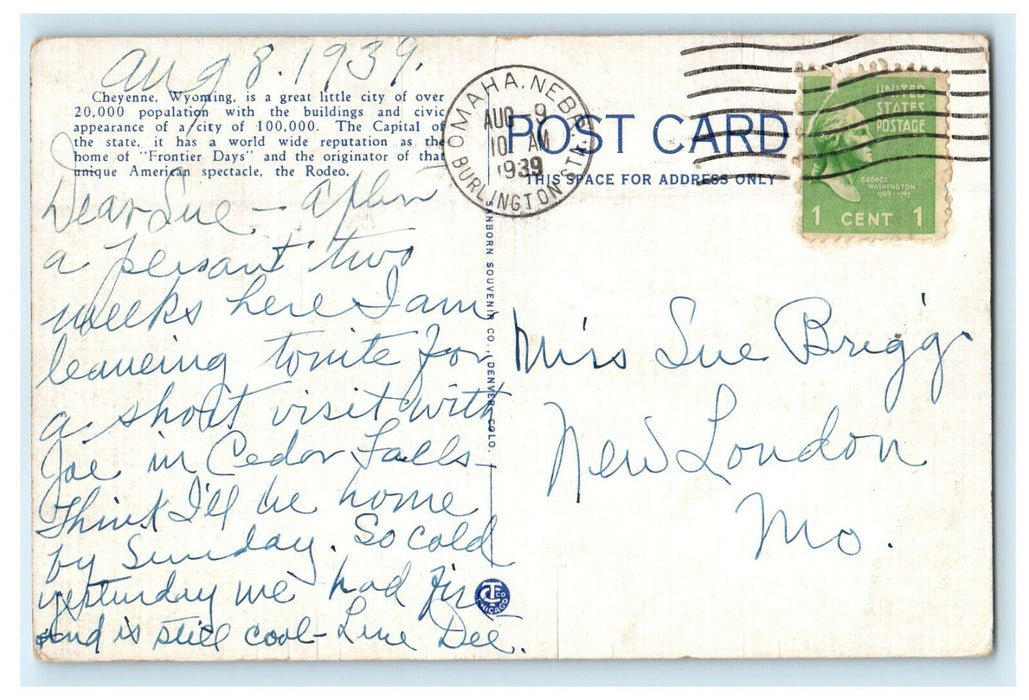 Aug 8. 1939.
Cheyenne, Wyoming, is a great little city of over
20,000 population with the buildings and civic
appearance of a city of 100,000. The Capital of
the state, it has a world wide reputation as the
home of "Frontier Days" and the originator of that
unique American spectacle, the Rodeo.
Dear Sue – after
a pleasant two
weeks here I am
leaveing tonite for
a short visit with
Joe in Cedar Falls –
Think I'll be home
by Sunday. So cold
yesturday we had fire
and is still cool – Dee.
SANBORN SOUVENIR CO., DENVER, COLO.
CT CO
CHICAGO
OMAHA, NEBR.
AUG 9
10 AM
1939
BURLINGTON STA.
POST CARD
THIS SPACE FOR ADDRESS ONLY
UNITED
STATES
POSTAGE
GEORGE
WASHINGTON
1789-1797
1 CENT 1
Miss Sue Briggs
New London
Mo.